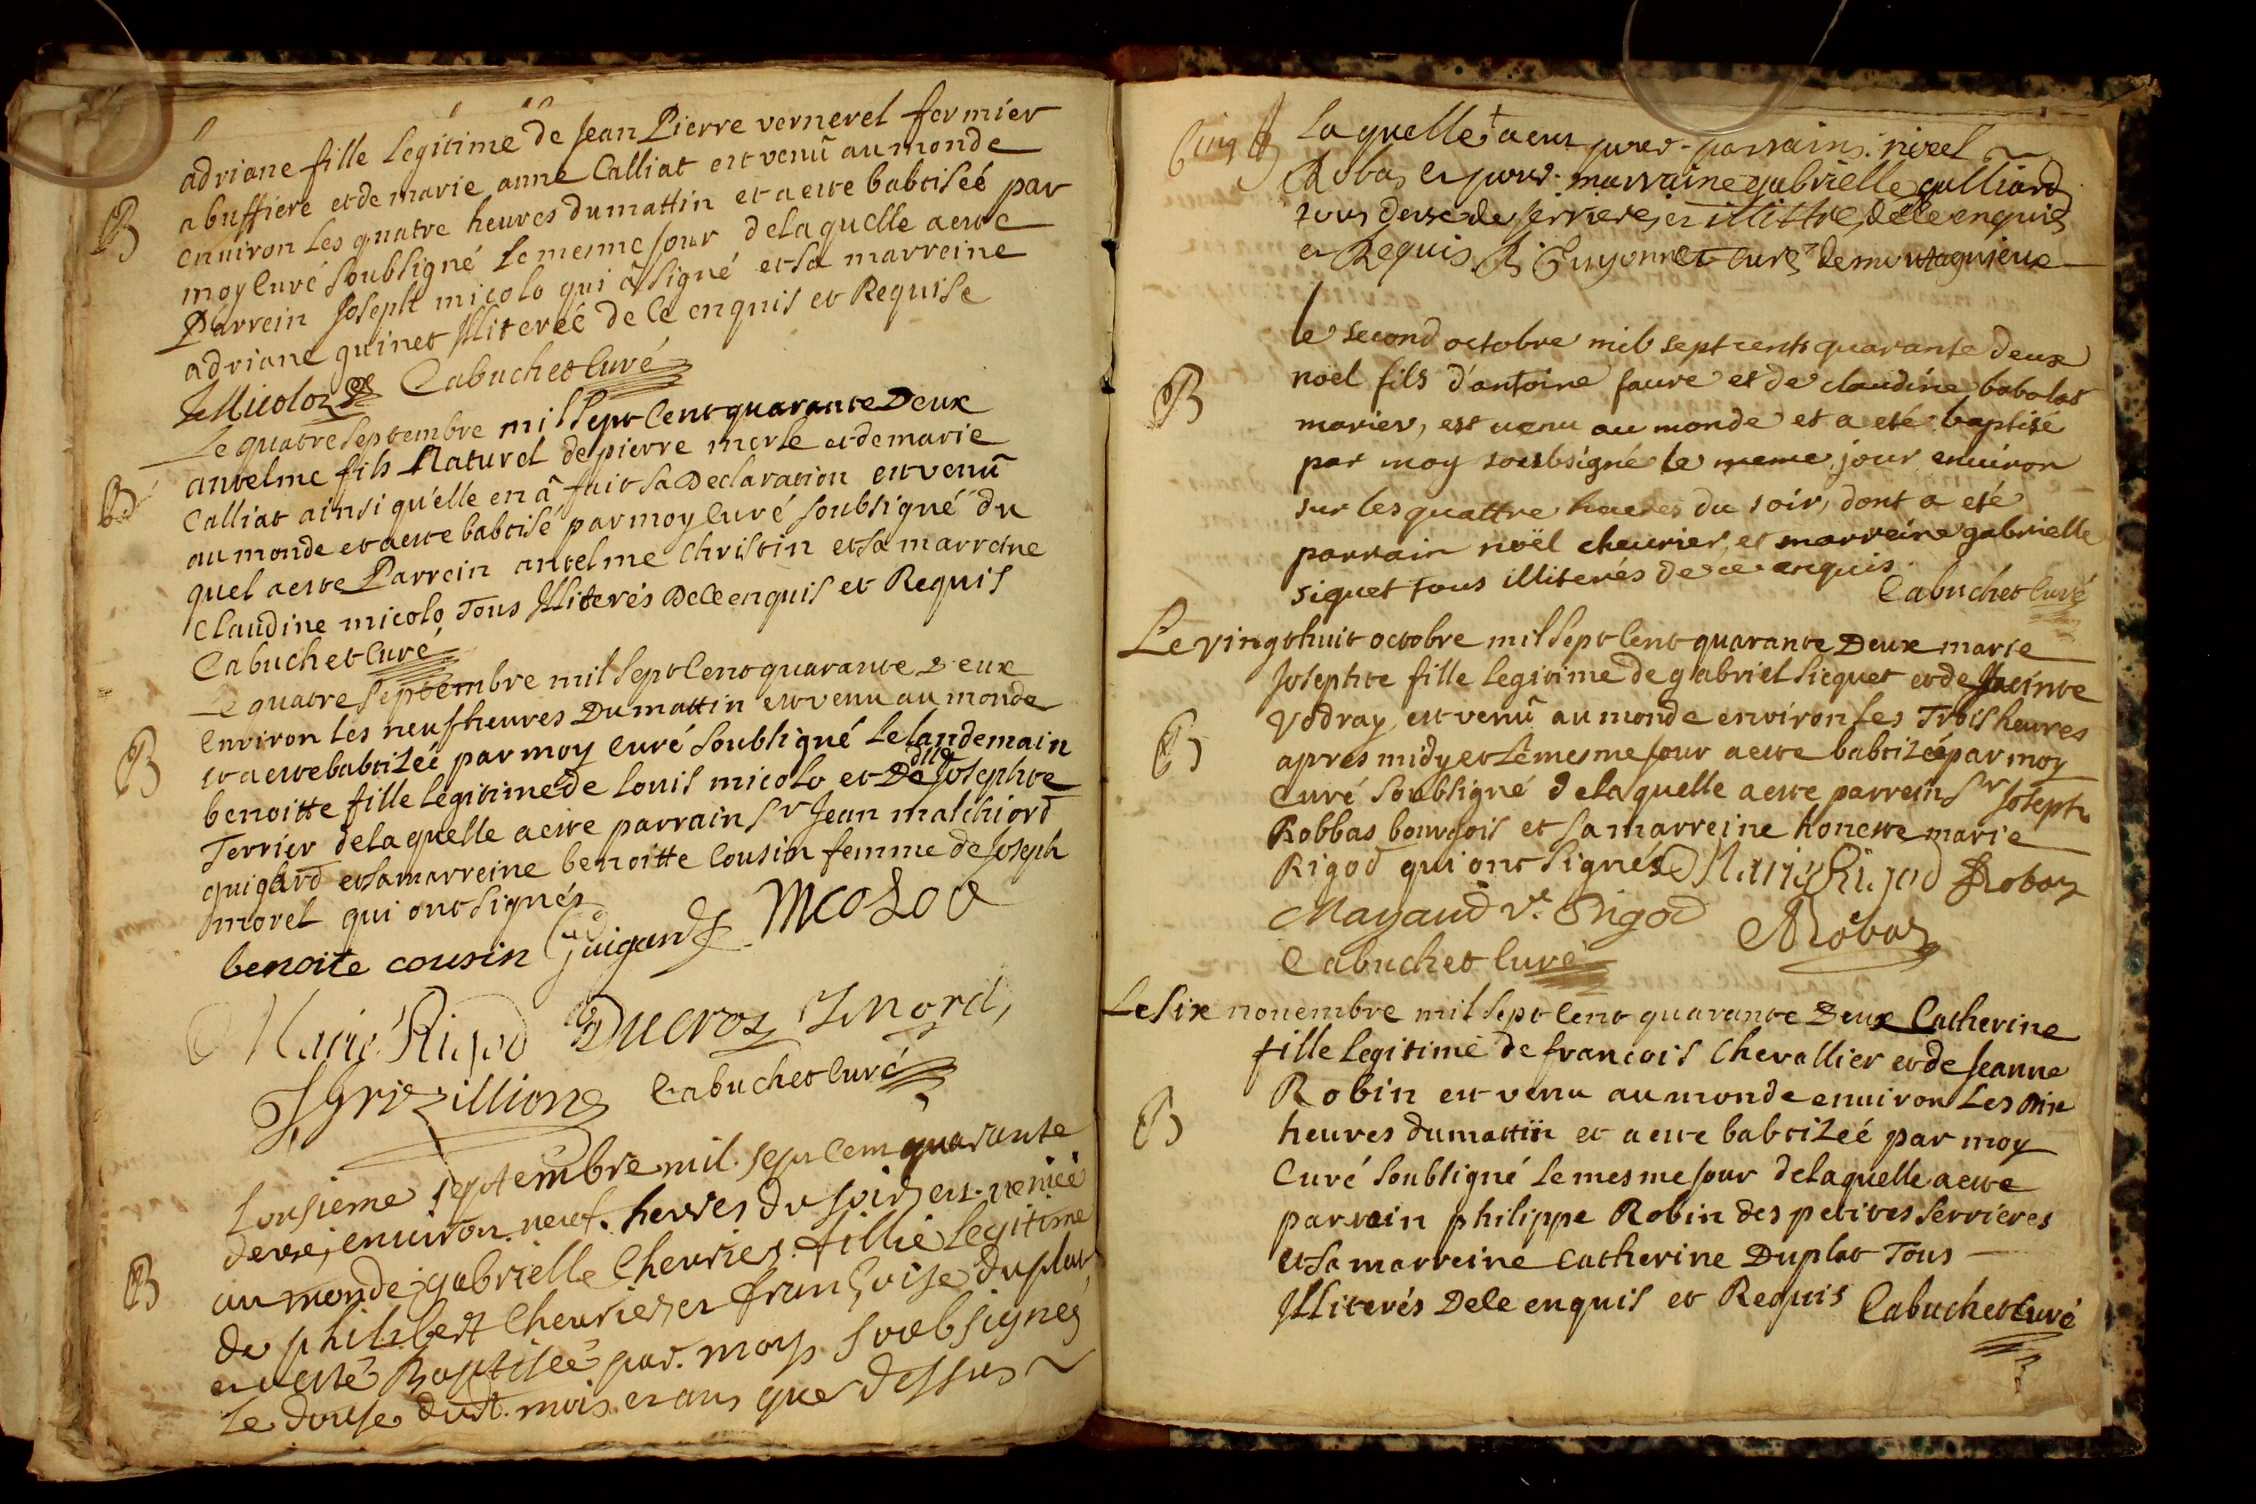 adriane fille legitime de Jean Pierre vernerel fermier
a buffiere et de marie anne Calliat est venû au monde
B
environ les quatre heures du mattin et a este babtiseé par
moy Curé soubsigné le mesme jour de laquelle a este
Parrein Joseph micolo qui â signé et sa marreine
adriane guinet Jlliterеé de ce enquis et Requise
JMicoloz Cabuchet Curé
Le quatre septembre mil sept Cent quarante Deux
antelme fils Naturel de pierre merle et de marie
B
Calliat ainsi qu'elle en â fait sa Declaration est venû
au monde et a este babtisé par moy Curé soubsigné du
quel a este Parrein antelme Christin et sa marreine
Claudine micolo Tous Jlliterés De ce enquis et Requis
Cabuchet Curé
Le quatre septembre mil sept Cent quarante deux
environ les neuf heures Du mattin est venu au monde
B
et a este babtizeé par moy Curé soubsigné le landemain
benoitte fille legitime de louis micolo et De dlle Josephte
Terrier de laquelle a este parrain Sr Jean malchiord
guigard et sa marreine benoitte Cousin femme de Joseph
morel qui ont signés
benoite cousin Guigard Micoloz
Marie Rigod Ducroz J morel,
Jgrizillion Cabuchet Curé
L'onsieme septembre mil sept cent quarante
deux, environ neuf heures du soir est venüe
au monde gabrielle Chevrier fillie legitime
B
de philibert Chevrier et françoise duplat
et a esté Baptiseé par moy soubsignés
le douse dudt mois et ans que dessus
laquelle a eut pour parrain noel
Robas et pour marraine gabrielle galliard
tous deux de serriere, et illittré, de ce enquis
et Requis Guyonnet Curé de montagnieux
le second octobre mil sept cents quarante deux
noël fils d'antoine faure et de claudine babolat
B
mariés, est venu au monde et a eté baptisé
par moy soubsigné le meme jour environ
sur les quattre heures du soir, dont a eté
parrain noël chevrier, et marreine gabrielle
siquet tous illiterés de ce enquis
Cabuchet Curé
Le vingt huit octobre mil sept Cent quarante Deux marie
Josephte fille legitime de gabriel sicquet et de Jacinte
Vodray est venû au monde environ les Trois heures
B
apres midy et le mesme jour a este babtizeé par moy
Curé soubsigné de laquelle a este parrein Sr Joseph
Robbas bourgois et sa marreine honeste marie
Rigod qui ont signés Marie Rigod JRobaz
Mayaud Ve Rigod Robaz
Cabuchet Curé
Le six novembre mil sept Cent quarante Deux Catherine
fille legitime de francois Chevallier et de Jeanne
Robin est venu au monde environ les Dix
B
heures du mattin et a este babtizeé par moy
Curé soubsigné le mesme jour de laquelle a este
parrein philippe Robin des petites serrieres
et sa marreine Catherine Duplat Tous
Jlliterés De ce enquis et Requis Cabuchet Curé